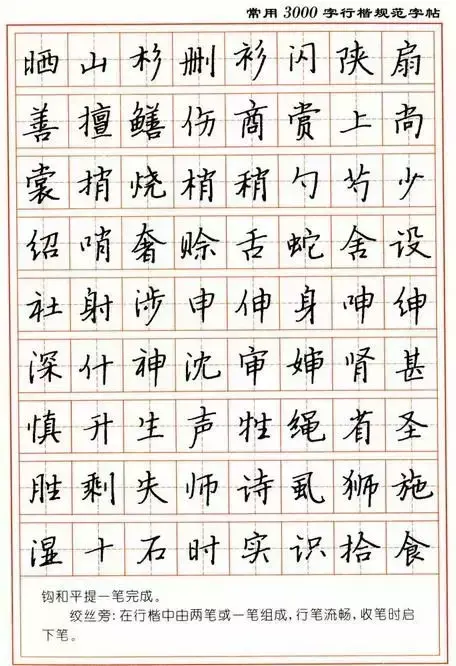 常用3000字行楷规范字帖
晒山杉删衫闪陕扇
善擅鳝伤商赏上尚
裳捎烧梢稍勺芍少
绍哨奢赊舌蛇舍设
社射涉申伸身呻绅
深什神沈审婶肾甚
慎升生声牲绳省圣
胜剩失师诗虱狮施
湿十石时实识拾食
钩和平提一笔完成。
绞丝旁：在行楷中由两笔或一笔组成，行笔流畅，收笔时启
下笔。